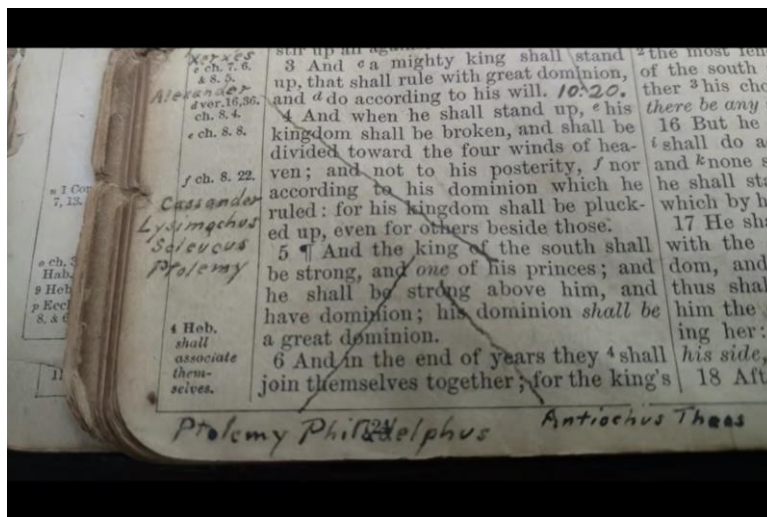 Xerxes
e ch. 7. 6.
& 8. 5.
Alexander
d ver. 16, 36.
ch. 8. 4.
e ch. 8. 8.
f ch. 8. 22.
Cassander
Lysimachus
Seleucus
Ptolemy
4 Heb.
shall
associate
them-
selves.
stir up all
3 And c a mighty king shall stand
up, that shall rule with great dominion,
and d do according to his will. 10:20.
4 And when he shall stand up, e his
kingdom shall be broken, and shall be
divided toward the four winds of hea-
ven; and not to his posterity, f nor
according to his dominion which he
ruled: for his kingdom shall be pluck-
ed up, even for others beside those.
5 ¶ And the king of the south shall
be strong, and one of his princes; and
he shall be strong above him, and
have dominion; his dominion shall be
a great dominion.
6 And in the end of years they 4 shall
join themselves together; for the king's
2 the most
of the south
ther 3 his
there be any
16 But he
i shall do
and k none
he shall
which by
17 He
with the
dom, and
thus
him the
ing her:
his side,
18
n 1
7, 13.
o ch.
Hab.
9 Heb
p Eccl
8. &
11
Ptolemy Philadelphus
Antiochus Theos